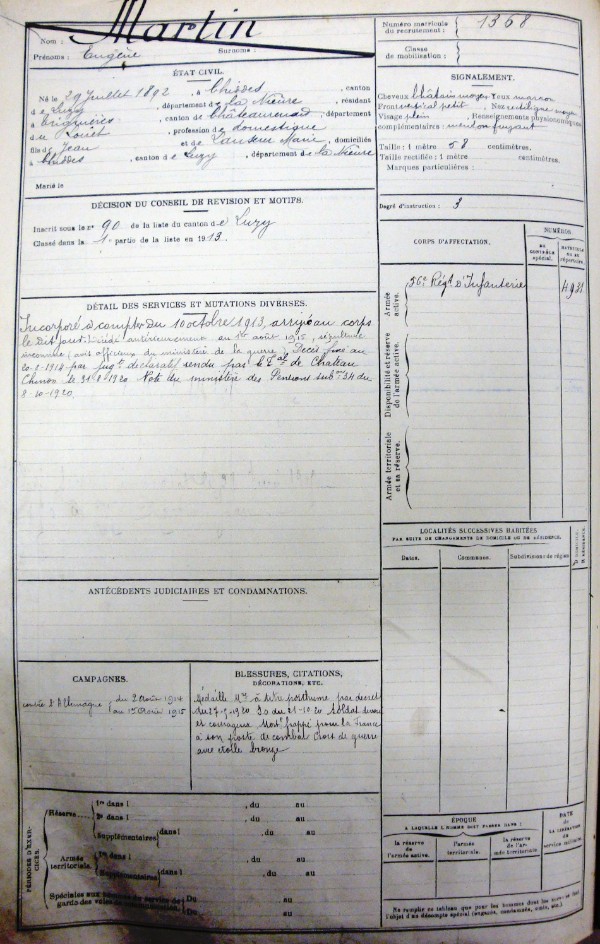 Nom : Martin
Prénoms : Eugène Surnoms :
Numéro matricule du recrutement : 1368
Classe de mobilisation :
ÉTAT CIVIL.
Né le 29 Juillet 1892, à Chiddes, canton
de Luzy, département de la Nièvre, résidant
à Trigueres, canton de Châteaurenard, département
du Loiret, profession de domestique
fils de Jean et de Marie, domiciliés
à Chiddes, canton de Luzy, département de la Nièvre
Marié le
SIGNALEMENT.
Cheveux Châtain moyen Yeux marron
Front petit, Nez rectiligne moyen
Visage plein Renseignements physionomiques
complémentaires : menton fuyant
Taille : 1 mètre 58 centimètres.
Taille rectifiée : 1 mètre centimètres.
Marques particulières :
Degré d'instruction : 3
DÉCISION DU CONSEIL DE REVISION ET MOTIFS.
Inscrit sous le n° 90 de la liste du canton de Luzy
Classé dans la 1e partie de la liste en 1913.
CORPS D'AFFECTATION.
NUMÉROS
AU CONTRÔLE SPÉCIAL.
MATRICULE OU AU RÉPERTOIRE.
Armée active.
56e Régt d'Infanterie 4931
Disponibilité et réserve de l'armée active.
Armée territoriale et sa réserve.
DÉTAIL DES SERVICES ET MUTATIONS DIVERSES.
Incorporé à compter du 10 octobre 1913, arrivé au corps
le dit jour. antérieurement au 1er août 1915, sépulture
inconnue (avis officieux du ministère de la guerre) Décès fixé au
par jugt déclaratif rendu par le Tal de Château
Chinon le 31-8-1920 Note du ministère des Pensions 34 du
8-10-1920
ANTÉCÉDENTS JUDICIAIRES ET CONDAMNATIONS.
LOCALITÉS SUCCESSIVES HABITÉES
PAR SUITE DE CHANGEMENTS DE DOMICILE OU DE RÉSIDENCE.
Dates. Communes. Subdivisions de région. D. DOMICILE. R. RÉSIDENCE.
CAMPAGNES.
contre l'Allemagne du 2 Août 1914
au 1er Août 1915
BLESSURES, CITATIONS,
DÉCORATIONS, ETC.
Médaille Mre à titre posthume par décret
du Jo du 21-10-20 Soldat dévoué
et courageux Mort frappé pour la France
à son poste de combat Croix de guerre
avec étoile bronze
PÉRIODES D'EXERCICES.
Réserve
1re dans l , du au
2e dans l , du au
Supplémentaires dans l , du au
Armée territoriale.
1re dans l , du au
Supplémentaires dans l , du au
Spéciales aux hommes du service de garde des voies de communication. Du au
Du au
ÉPOQUE
A LAQUELLE L'HOMME DOIT PASSER DANS :
la réserve de l'armée active.
l'armée territoriale.
la réserve de l'armée territoriale.
DATE DE LA LIBÉRATION DU service militaire.
Ne remplir ce tableau que pour les hommes dont les services font
l'objet d'un décompte spécial (engagés, condamnés, omis, etc.)